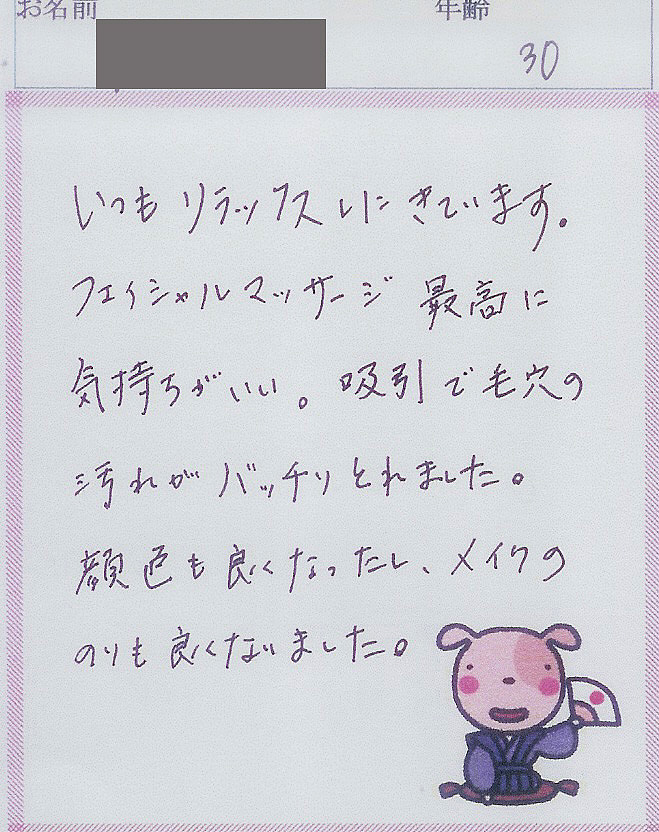 お名前 年齢
30
いつもリラックスしにきています。
フェイシャルマッサージ 最高に
気持ちがいい。吸引で毛穴の
汚れがバッチリとれました。
顔色も良くなったし、メイクの
のりも良くなりました。